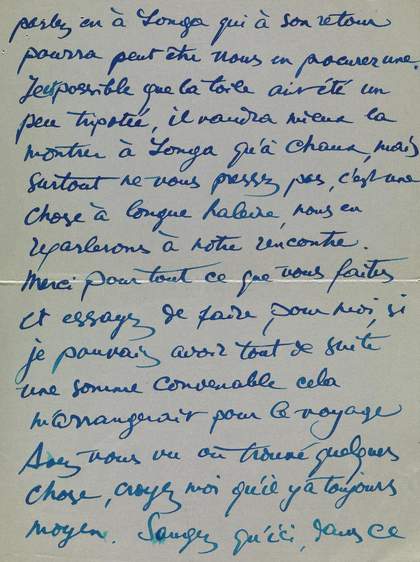 parlez en à Longa qui à son retour
pourra peut être nous en procurer une.
possible que la toile ait été un
peu tripotée, il vaudra mieux la
montrer à Longa qu'à Chana, mais
surtout ne vous pressez pas, c'est une
chose à longue haleine, nous en
reparlerons à notre rencontre.
Merci pour tout ce que vous faites
et essayez de faire, pour moi, si
je pouvais avoir tout de suite
une somme convenable cela
m'arrangerait pour le voyage
Avez vous vu ou trouvé quelques
chose, croyez moi qu'il y a toujours
moyen. Songez qu'ici, dans ce